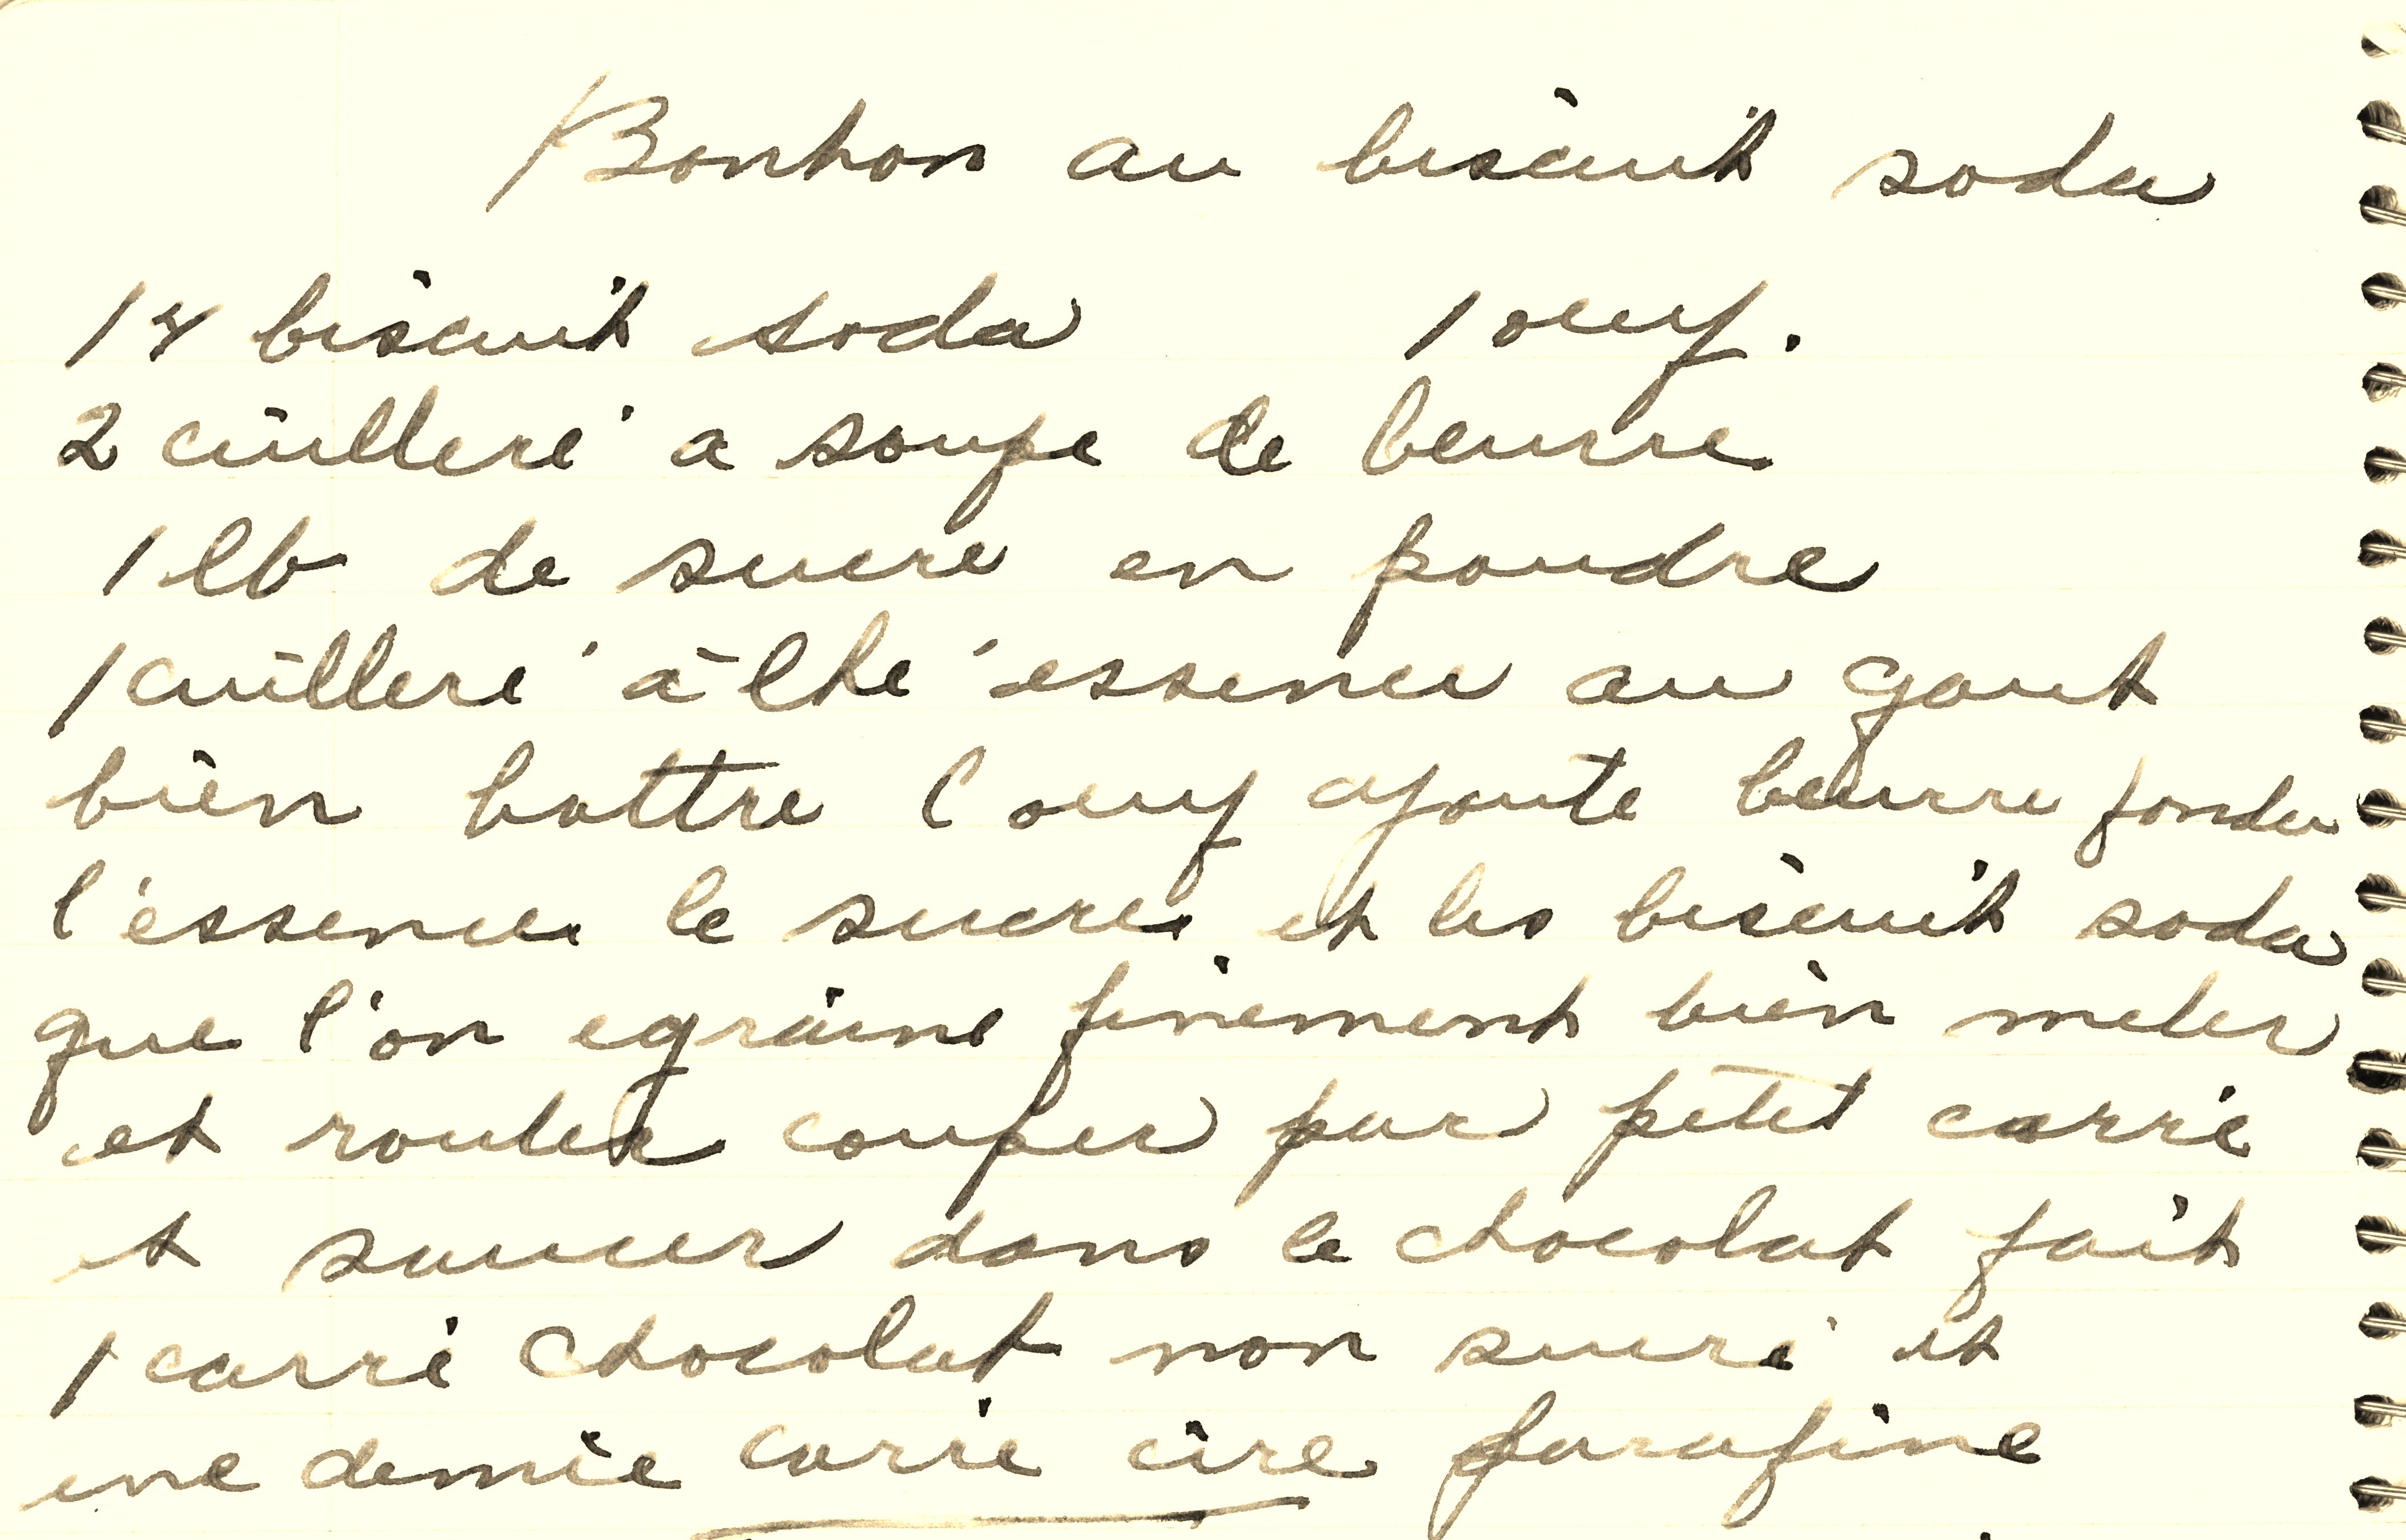 Bonbon au biscuit soda
18 biscuit soda 1 oeuf.
2 cuilleré a soupe de beurre
1 lb de sucre en poudre
1 cuilleré à thé essence au gout
bien battre l oeuf ajoute beurre fondu
l'essence le sucre et les biscuit soda
que l'on egraine finement bien meler
et rouler couper par petit carré
et saucer dans le chocolat fait
1 carré chocolat non sucré et
une demie carré cire parafine